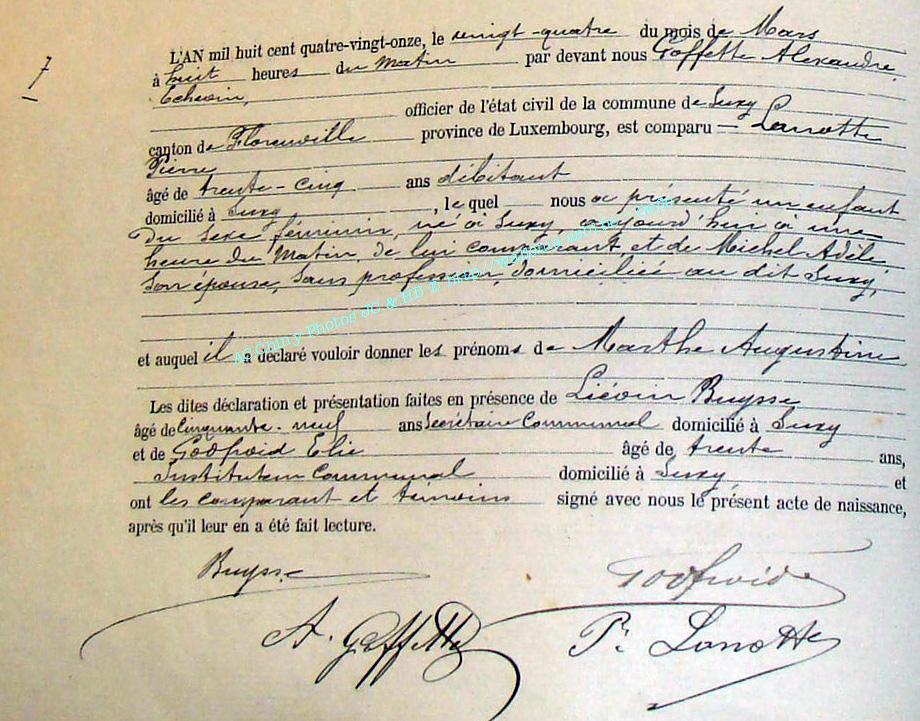 7
L'AN mil huit cent quatre-vingt-onze, le vingt-quatre du mois de Mars
à huit heures du Matin par devant nous Goffette Alexandre,
Echevin,
officier de l'état civil de la commune de Suxy
canton de Florenville province de Luxembourg, est comparu — Lanotte
Pierre
âgé de trente-cinq ans débitant
domicilié à Suxy, le quel nous a présenté un enfant
du sexe féminin, né à Suxy, aujourd'hui à une
heure du Matin, de lui comparant et de Michel Adèle
son épouse, sans profession, domiciliée au dit Suxy,
et auquel il a déclaré vouloir donner les prénoms de Marthe Augustine
Les dites déclaration et présentation faites en présence de Liévin Buysse
âgé de cinquante-neuf ans Secrétaire Communal domicilié à Suxy
et de Godfroid Elie âgé de trente ans,
Instituteur Communal domicilié à Suxy, et
ont les comparant et temoins signé avec nous le présent acte de naissance,
après qu'il leur en a été fait lecture.
Buysse Godfroid
A. Goffette P. Lanotte